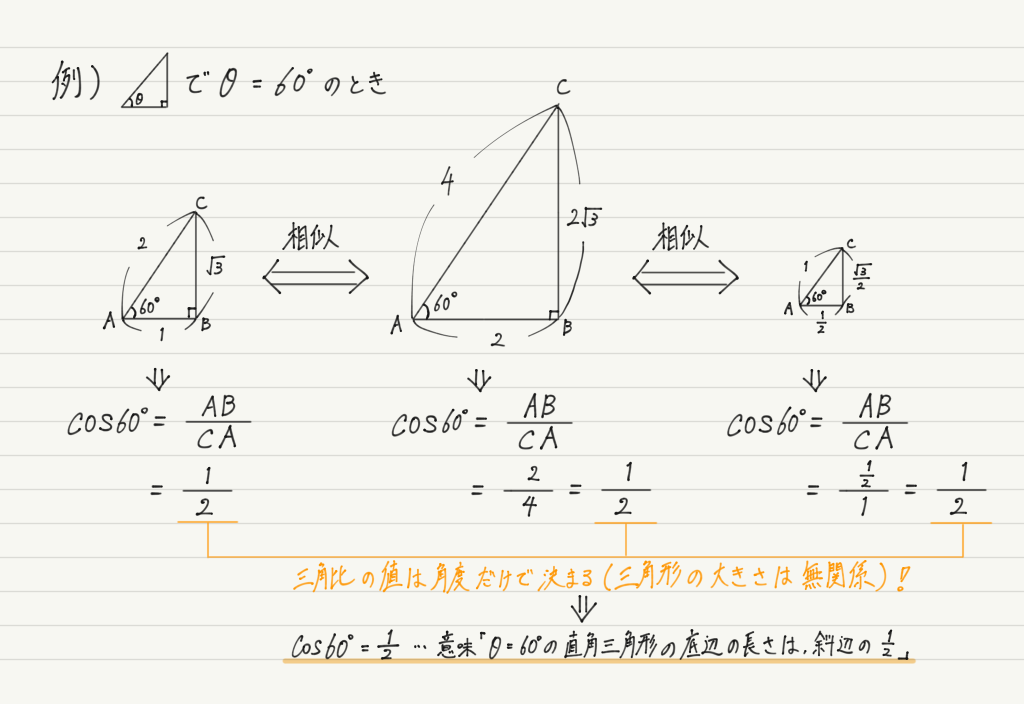 例) θ で θ = 60° のとき
C
2
√3
60°
A
B
1
相似
C
4
2√3
60°
A
B
2
相似
C
1
√3/2
60°
A
B
1/2
⇓ ⇓ ⇓
cos60° = AB/CA
= 1/2
cos60° = AB/CA
= 2/4 = 1/2
cos60° = AB/CA
= (1/2)/1 = 1/2
三角比の値は角度だけで決まる(三角形の大きさは無関係)!
⇓
cos60° = 1/2 … 意味「θ=60°の直角三角形の底辺の長さは,斜辺の 1/2」